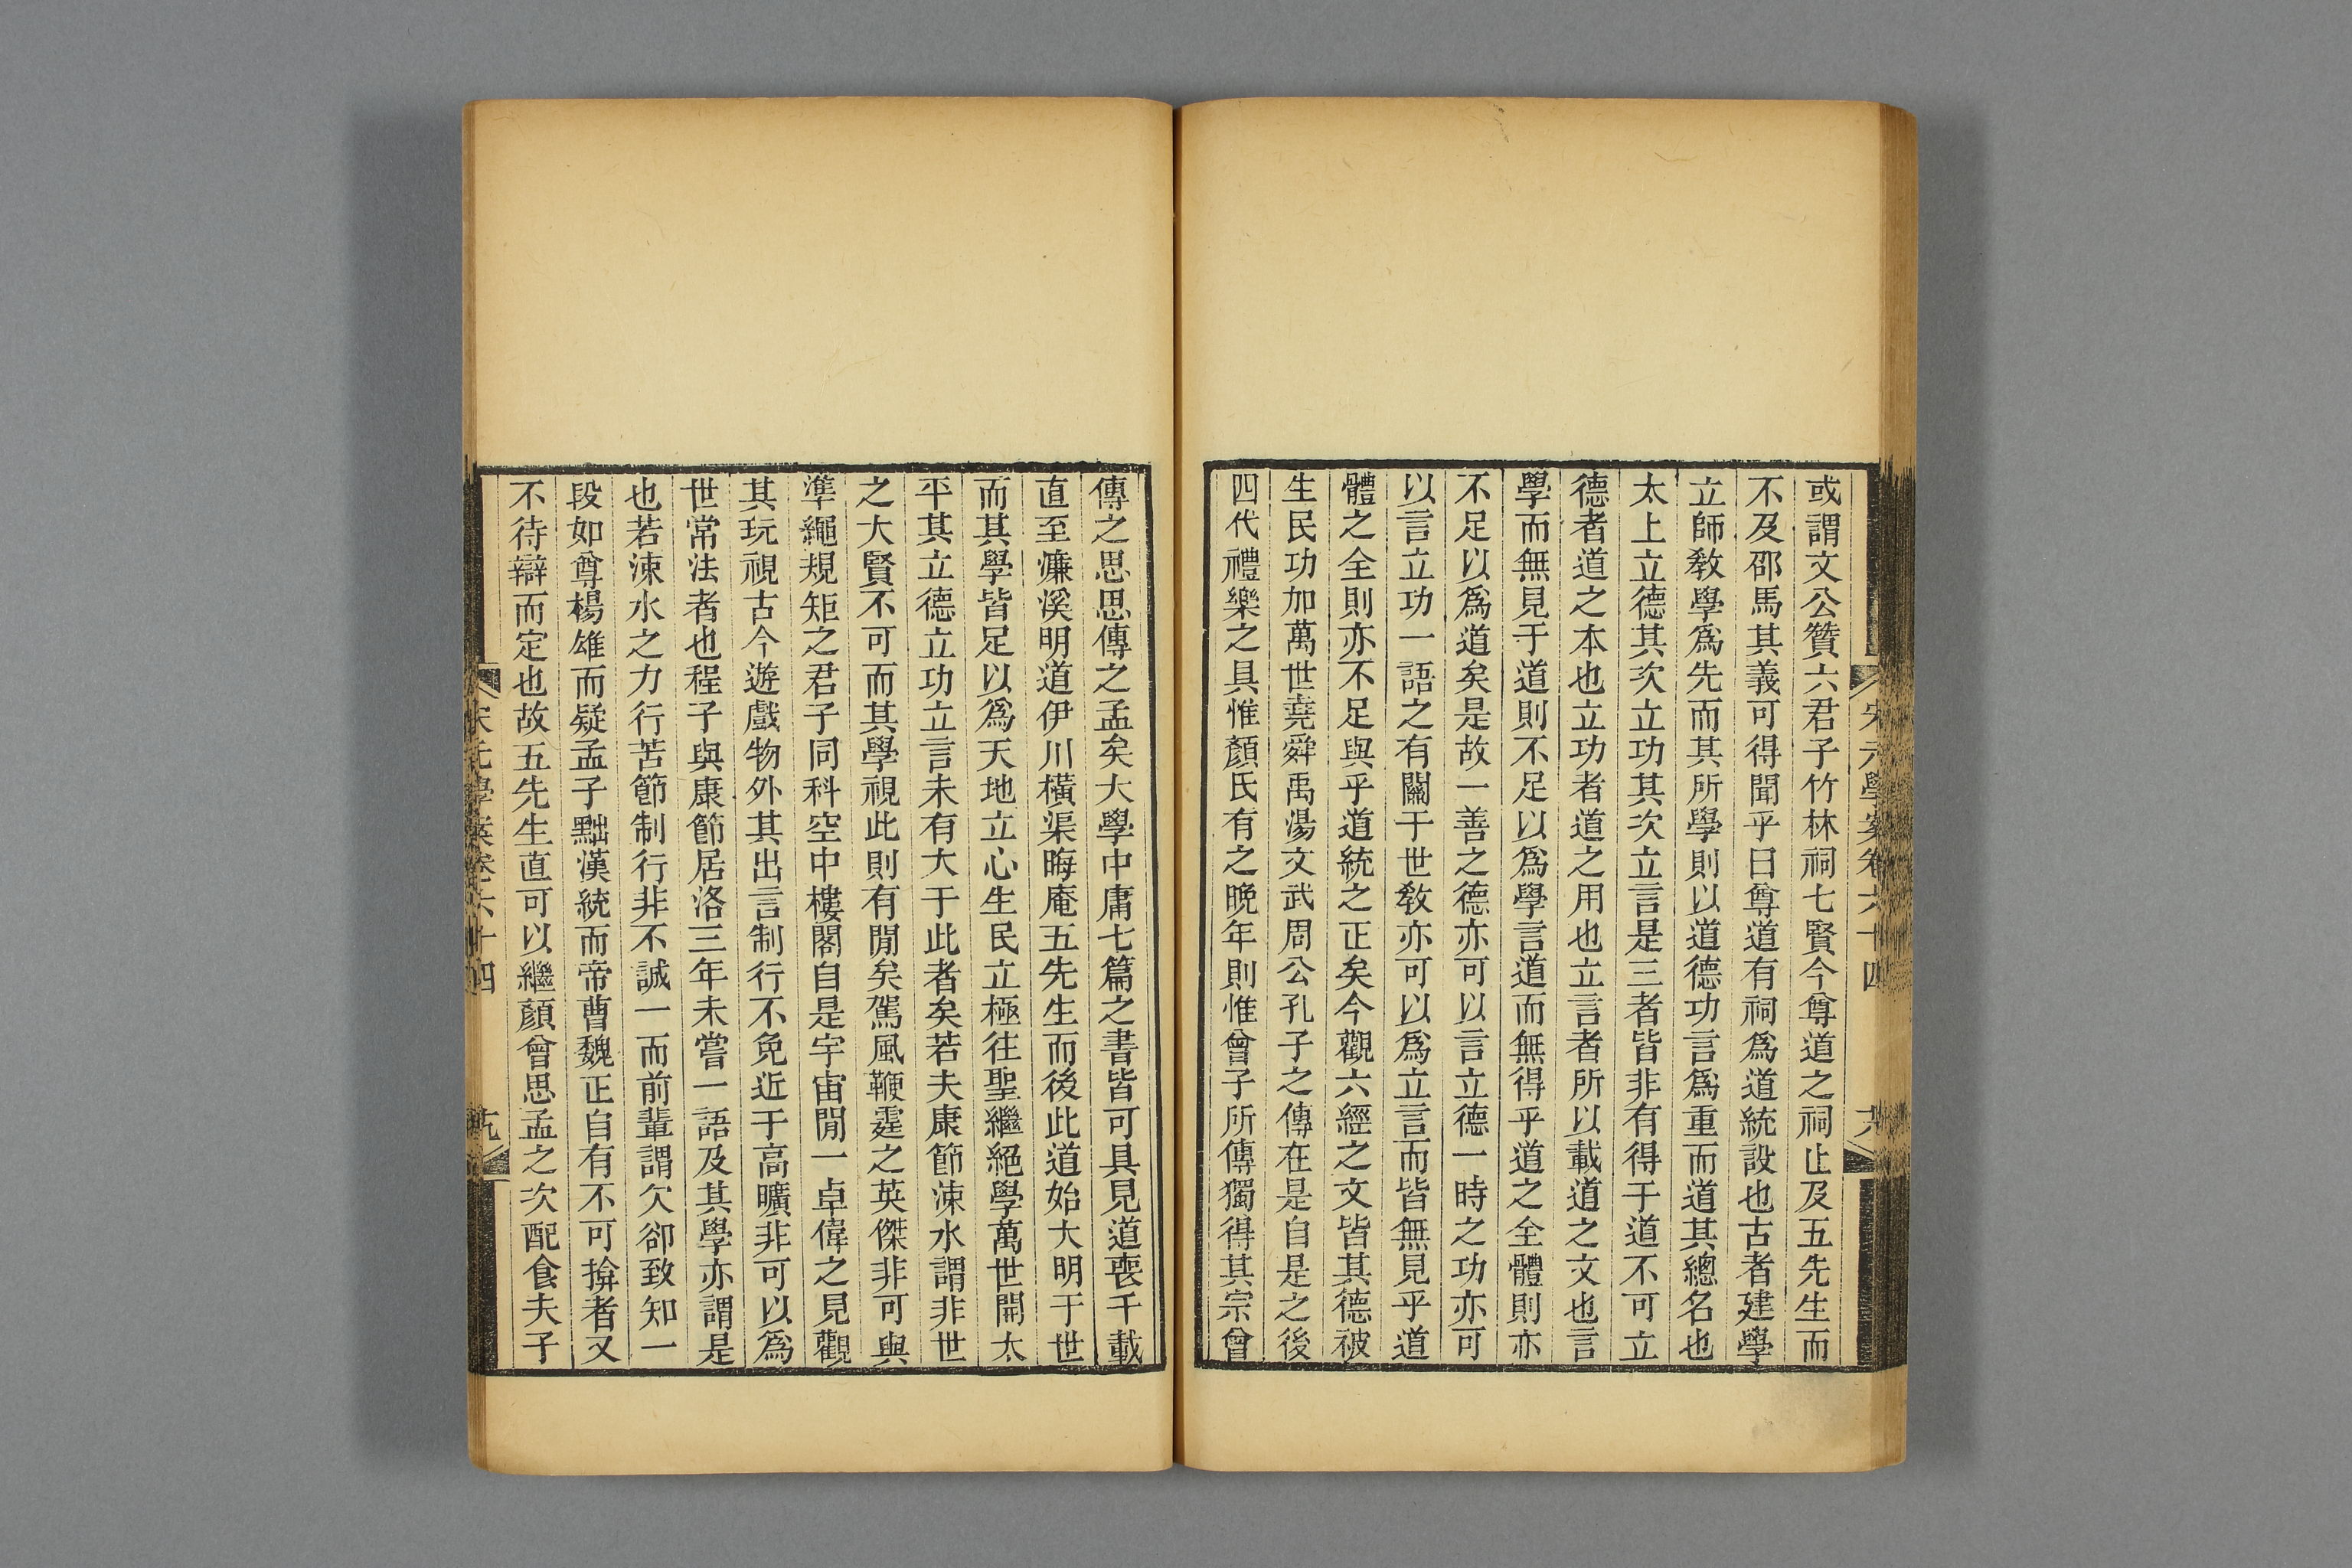 宋元學案卷六十四
或謂文公贊六君子竹林祠七賢今尊道之祠止及五先生而
不及邵馬其義可得聞乎曰尊道有祠爲道統設也古者建學
立師敎學爲先而其所學則以道德功言爲重而道其總名也
太上立德其次立功其次立言是三者皆非有得于道不可立
德者道之本也立功者道之用也立言者所以載道之文也言
學而無見于道則不足以爲學言道而無得乎道之全體則亦
不足以爲道矣是故一善之德亦可以言立德一時之功亦可
以言立功一語之有關于世敎亦可以爲立言而皆無見乎道
體之全則亦不足與乎道統之正矣今觀六經之文皆其德被
生民功加萬世堯舜禹湯文武周公孔子之傳在是自是之後
四代禮樂之具惟顏氏有之晚年則惟曾子所傳獨得其宗曾
傳之思思傳之孟矣大學中庸七篇之書皆可具見道喪千載
直至濂溪明道伊川橫渠晦庵五先生而後此道始大明于世
而其學皆足以爲天地立心生民立極往聖繼絕學萬世開太
平其立德立功立言未有大于此者矣若夫康節涑水謂非世
之大賢不可而其學視此則有閒矣駕風鞭霆之英傑非可與
準繩規矩之君子同科空中樓閣自是宇宙閒一卓偉之見觀
其玩視古今遊戲物外其出言制行不免近于高曠非可以爲
世常法者也程子與康節居洛三年未嘗一語及其學亦謂是
也若涑水之力行苦節制行非不誠一而前輩謂欠卻致知一
段如尊楊雄而疑孟子黜漢統而帝曹魏正自有不可揜者又
不待辯而定也故五先生直可以繼顏曾思孟之次配食夫子
宋元學案卷六十四